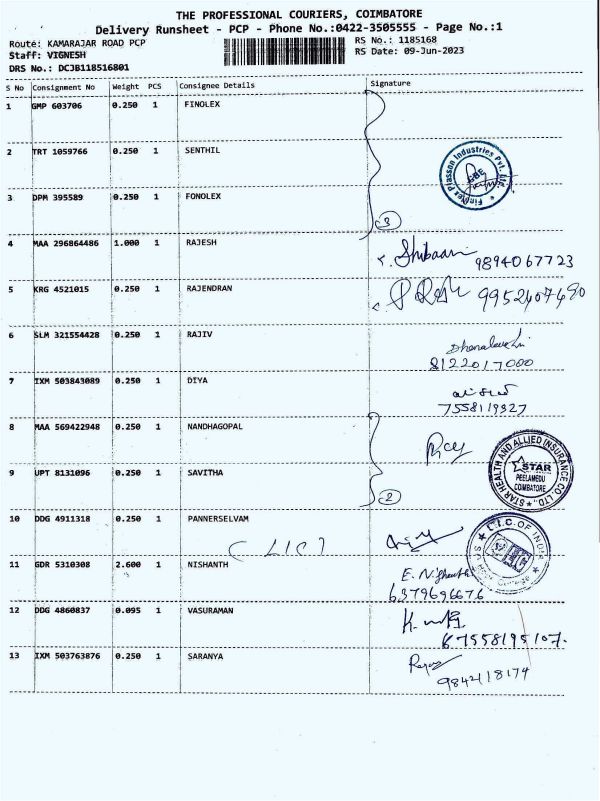 THE PROFESSIONAL COURIERS, COIMBATORE
Delivery Runsheet - PCP - Phone No.:0422-3505555 - Page No.:1
Route: KAMARAJAR ROAD PCP
RS No.: 1185168
Staff: VIGNESH
RS Date: 09-Jun-2023
DRS No.: DCJB118516801
S No Consignment No Weight PCS Consignee Details Signature
1 GMP 603706 0.250 1 FINOLEX
2 TRT 1059766 0.250 1 SENTHIL
Finolex Plasson Industries Pvt. Ltd.
CBE
3 DPM 395589 0.250 1 FONOLEX
3
4 MAA 296864486 1.000 1 RAJESH
9894067723
5 KRG 4521015 0.250 1 RAJENDRAN
9952407480
6 SLM 321554428 0.250 1 RAJIV
8122017000
7 IXM 503843089 0.250 1 DIYA
7558119327
8 MAA 569422948 0.250 1 NANDHAGOPAL
STAR HEALTH AND ALLIED INSURANCE CO. LTD.
STAR
PEELAMEDU
COIMBATORE
9 UPT 8131096 0.250 1 SAVITHA
2
10 DDG 4911318 0.250 1 PANNERSELVAM
(LIC)
L.I.C. OF INDIA
11 GDR 5310308 2.600 1 NISHANTH
6379696676
12 DDG 4860837 0.095 1 VASURAMAN
67558195107.
13 IXM 503763876 0.250 1 SARANYA
9842118174